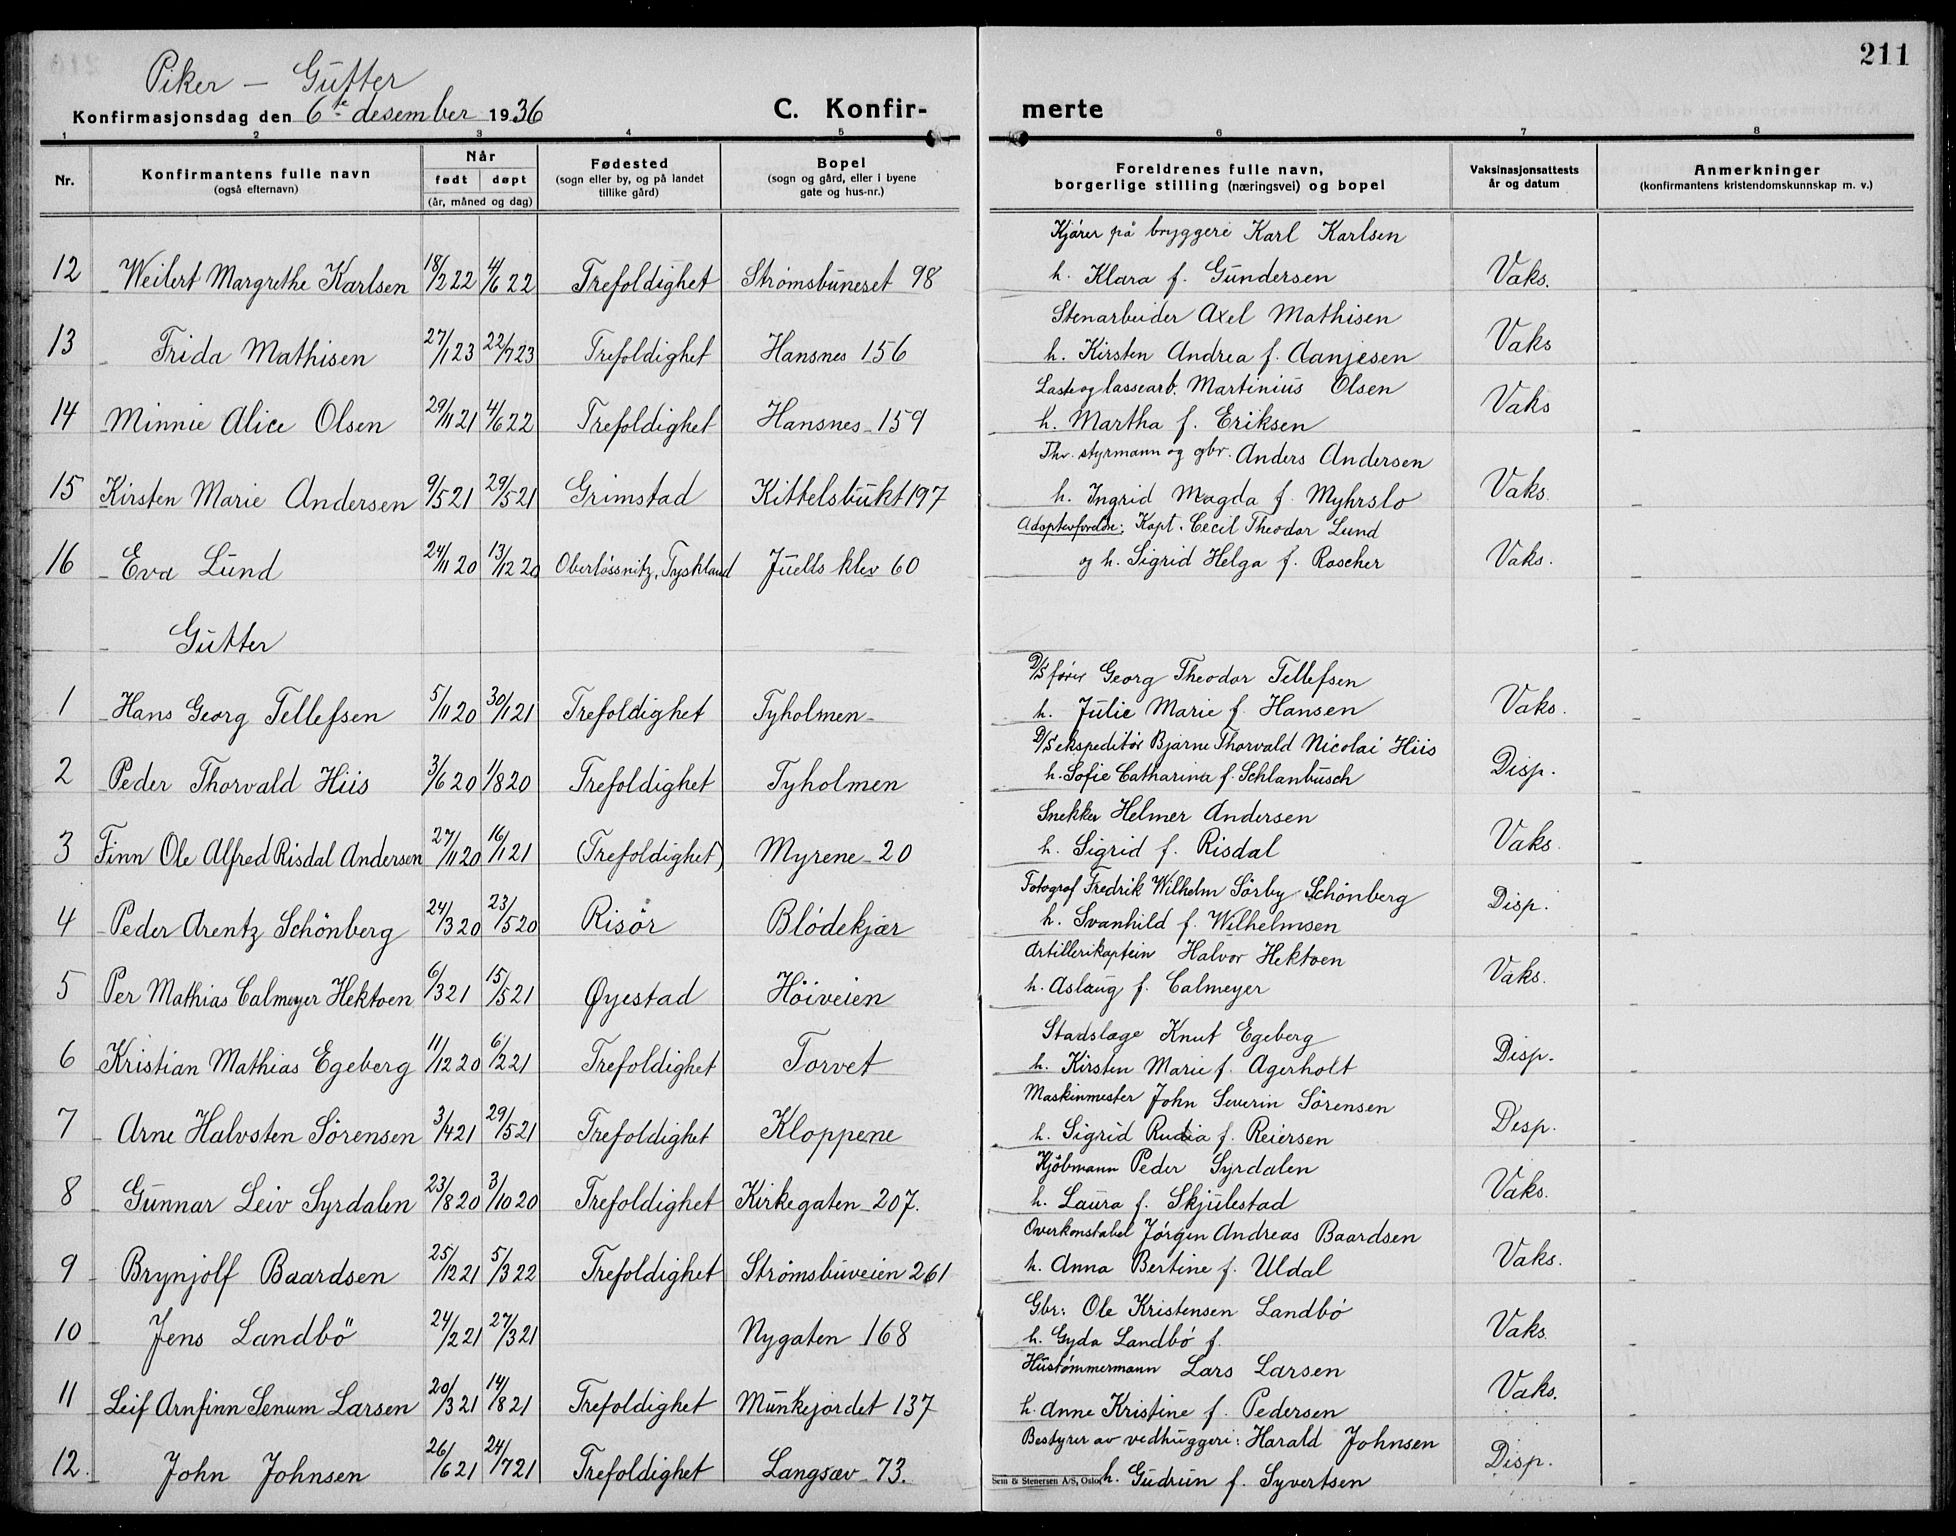 211
Piker – Gutter
Konfirmasjonsdag den 6te desember 1936
C. Konfir-
merte
1 2 3 4 5 6 7 8
Nr.
Konfirmantens fulle navn
(også efternavn)
Når
født døpt
(år, måned og dag)
Fødested
(sogn eller by, og på landet
tillike gård)
Bopel
(sogn og gård, eller i byene
gate og hus-nr.)
Foreldrenes fulle navn,
borgerlige stilling (næringsvei) og bopel
Vaksinasjonsattests
år og datum
Anmerkninger
(konfirmantens kristendomskunnskap m. v.)
Kjører på bryggeri Karl Karlsen
12 Weilert Margrethe Karlsen 18/2 22 4/6 22 Trefoldighet Strømsbuneset 98 h. Klara f. Gundersen Vaks.
Stenarbeider Axel Mathisen
13 Frida Mathisen 27/1 23 22/7 23 Trefoldighet Hansnes 156 h. Kirsten Andrea f. Aanjesen Vaks
Laste og lossearb. Martinius Olsen
14 Minnie Alice Olsen 29/11 21 4/6 22 Trefoldighet Hansnes 159 h. Martha f. Eriksen Vaks
Thv. styrmann og gbr. Anders Andersen
15 Kirsten Marie Andersen 9/5 21 29/5 21 Grimstad Kittelsbukt 197 h. Ingrid Magda f. Myhrslo Vaks.
Adoptivforeldre: Kapt. Cecil Theodor Lund
16 Eva Lund 24/11 20 13/12 20 Oberlössnitz, Tyskland Juells klev 60 og h. Sigrid Helga f. Roscher Vaks.
Gutter
D/S fører Georg Theodor Tellefsen
1 Hans Georg Tellefsen 5/11 20 30/1 21 Trefoldighet Tyholmen h. Julie Marie f. Hansen Vaks.
D/S ekspeditör Bjarne Thorvald Nicolai Hiis
2 Peder Thorvald Hiis 3/6 20 1/8 20 Trefoldighet Tyholmen h. Sofie Catharina f. Schlanbusch Disp.
Snekker Helmer Andersen
3 Finn Ole Alfred Risdal Andersen 27/11 20 16/1 21 (Trefoldighet) Myrene 20 h. Sigrid f. Risdal Vaks.
Fotograf Fredrik Wilhelm Sörby Schönberg
4 Peder Arentz Schönberg 24/3 20 23/5 20 Risör Blödekjær h. Svanhild f. Wilhelmsen Disp.
Artillerikaptein Halvor Hektoen
5 Per Mathias Calmeyer Hektoen 6/3 21 15/5 21 Øyestad Höiveien h. Aslaug f. Calmeyer Vaks.
Stadslæge Knut Egeberg
6 Kristian Mathias Egeberg 11/12 20 6/2 21 Trefoldighet Torvet h. Kirsten Marie f. Agerholt Disp.
Maskinmester John Severin Sörensen
7 Arne Halvsten Sörensen 3/4 21 29/5 21 Trefoldighet Kloppene h. Sigrid f. Reiersen Disp.
Kjöbmann Peder Syrdalen
8 Gunnar Leiv Syrdalen 23/8 20 3/10 20 Trefoldighet Kirkegaten 207. h. Laura f. Skjulestad Vaks.
Overkonstabel Jørgen Andreas Baardsen
9 Brynjolf Baardsen 25/12 21 5/3 22 Trefoldighet Strømsbuveien 261 h. Anna Bertine f. Uldal Vaks.
Gbr: Ole Kristensen Landbö
10 Jens Landbö 24/2 21 27/3 21 Nygaten 168 h. Gyda Landbö f. Vaks.
Hustömmermann Lars Larsen
11 Leif Arnfinn Senum Larsen 20/3 21 14/8 21 Trefoldighet Munkejordet 137 h. Anne Kristine f. Pedersen Vaks.
Bestyrer av vedhuggeri: Harald Johnsen
12. John Johnsen 26/6 21 24/7 21 Trefoldighet Langsæv 73. h. Gudrun f. Syvertsen Disp.
Sem & Stenersen A/S, Oslo